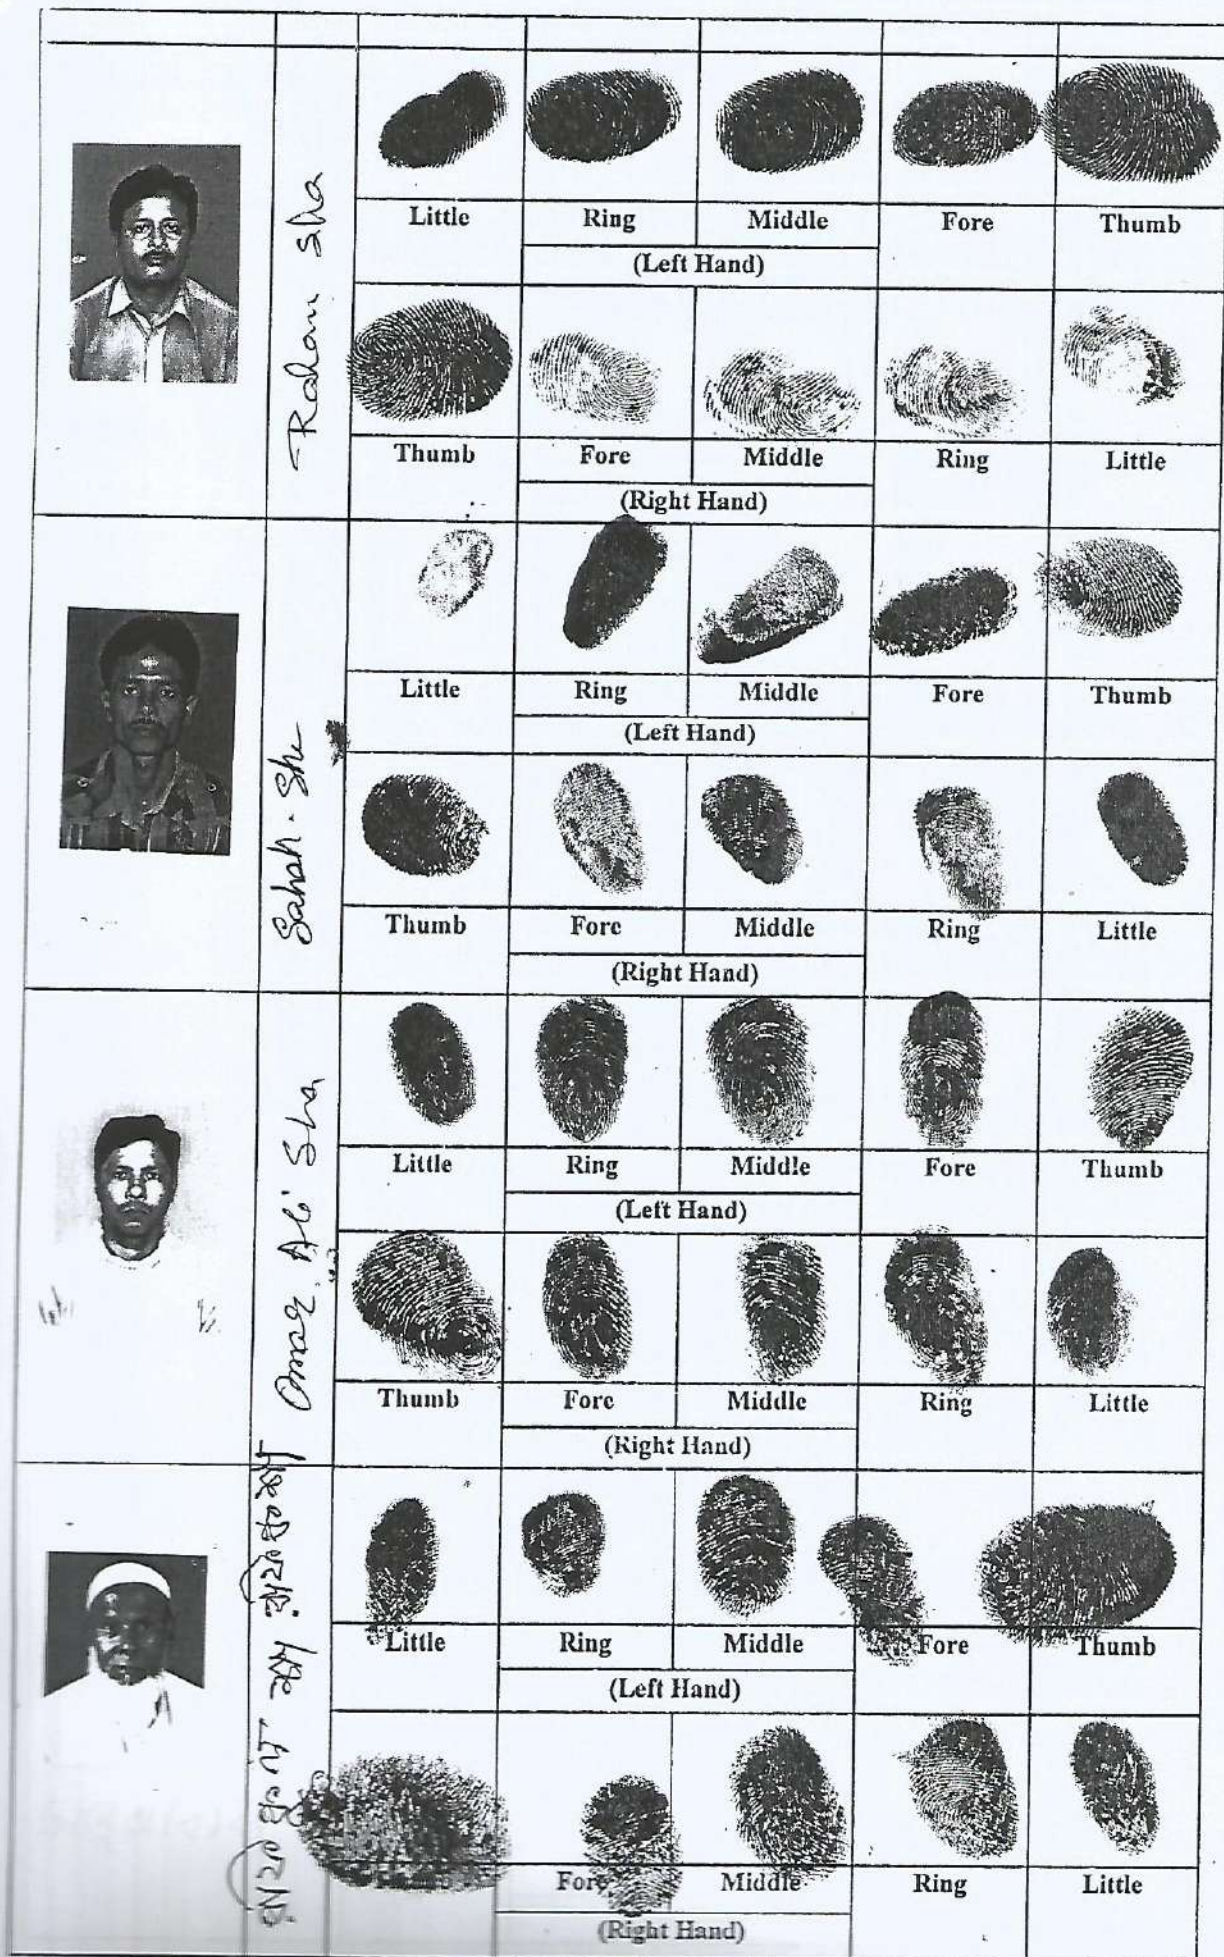 Rohan Sha
Little Ring Middle Fore Thumb
(Left Hand)
Thumb Fore Middle Ring Little
(Right Hand)
Little Ring Middle Fore Thumb
(Left Hand)
Thumb Fore Middle Ring Little
(Right Hand)
Omar Ali Sha
Little Ring Middle Fore Thumb
(Left Hand)
Thumb Fore Middle Ring Little
(Right Hand)
Little Ring Middle Fore Thumb
(Left Hand)
Fore Middle Ring Little
(Right Hand)